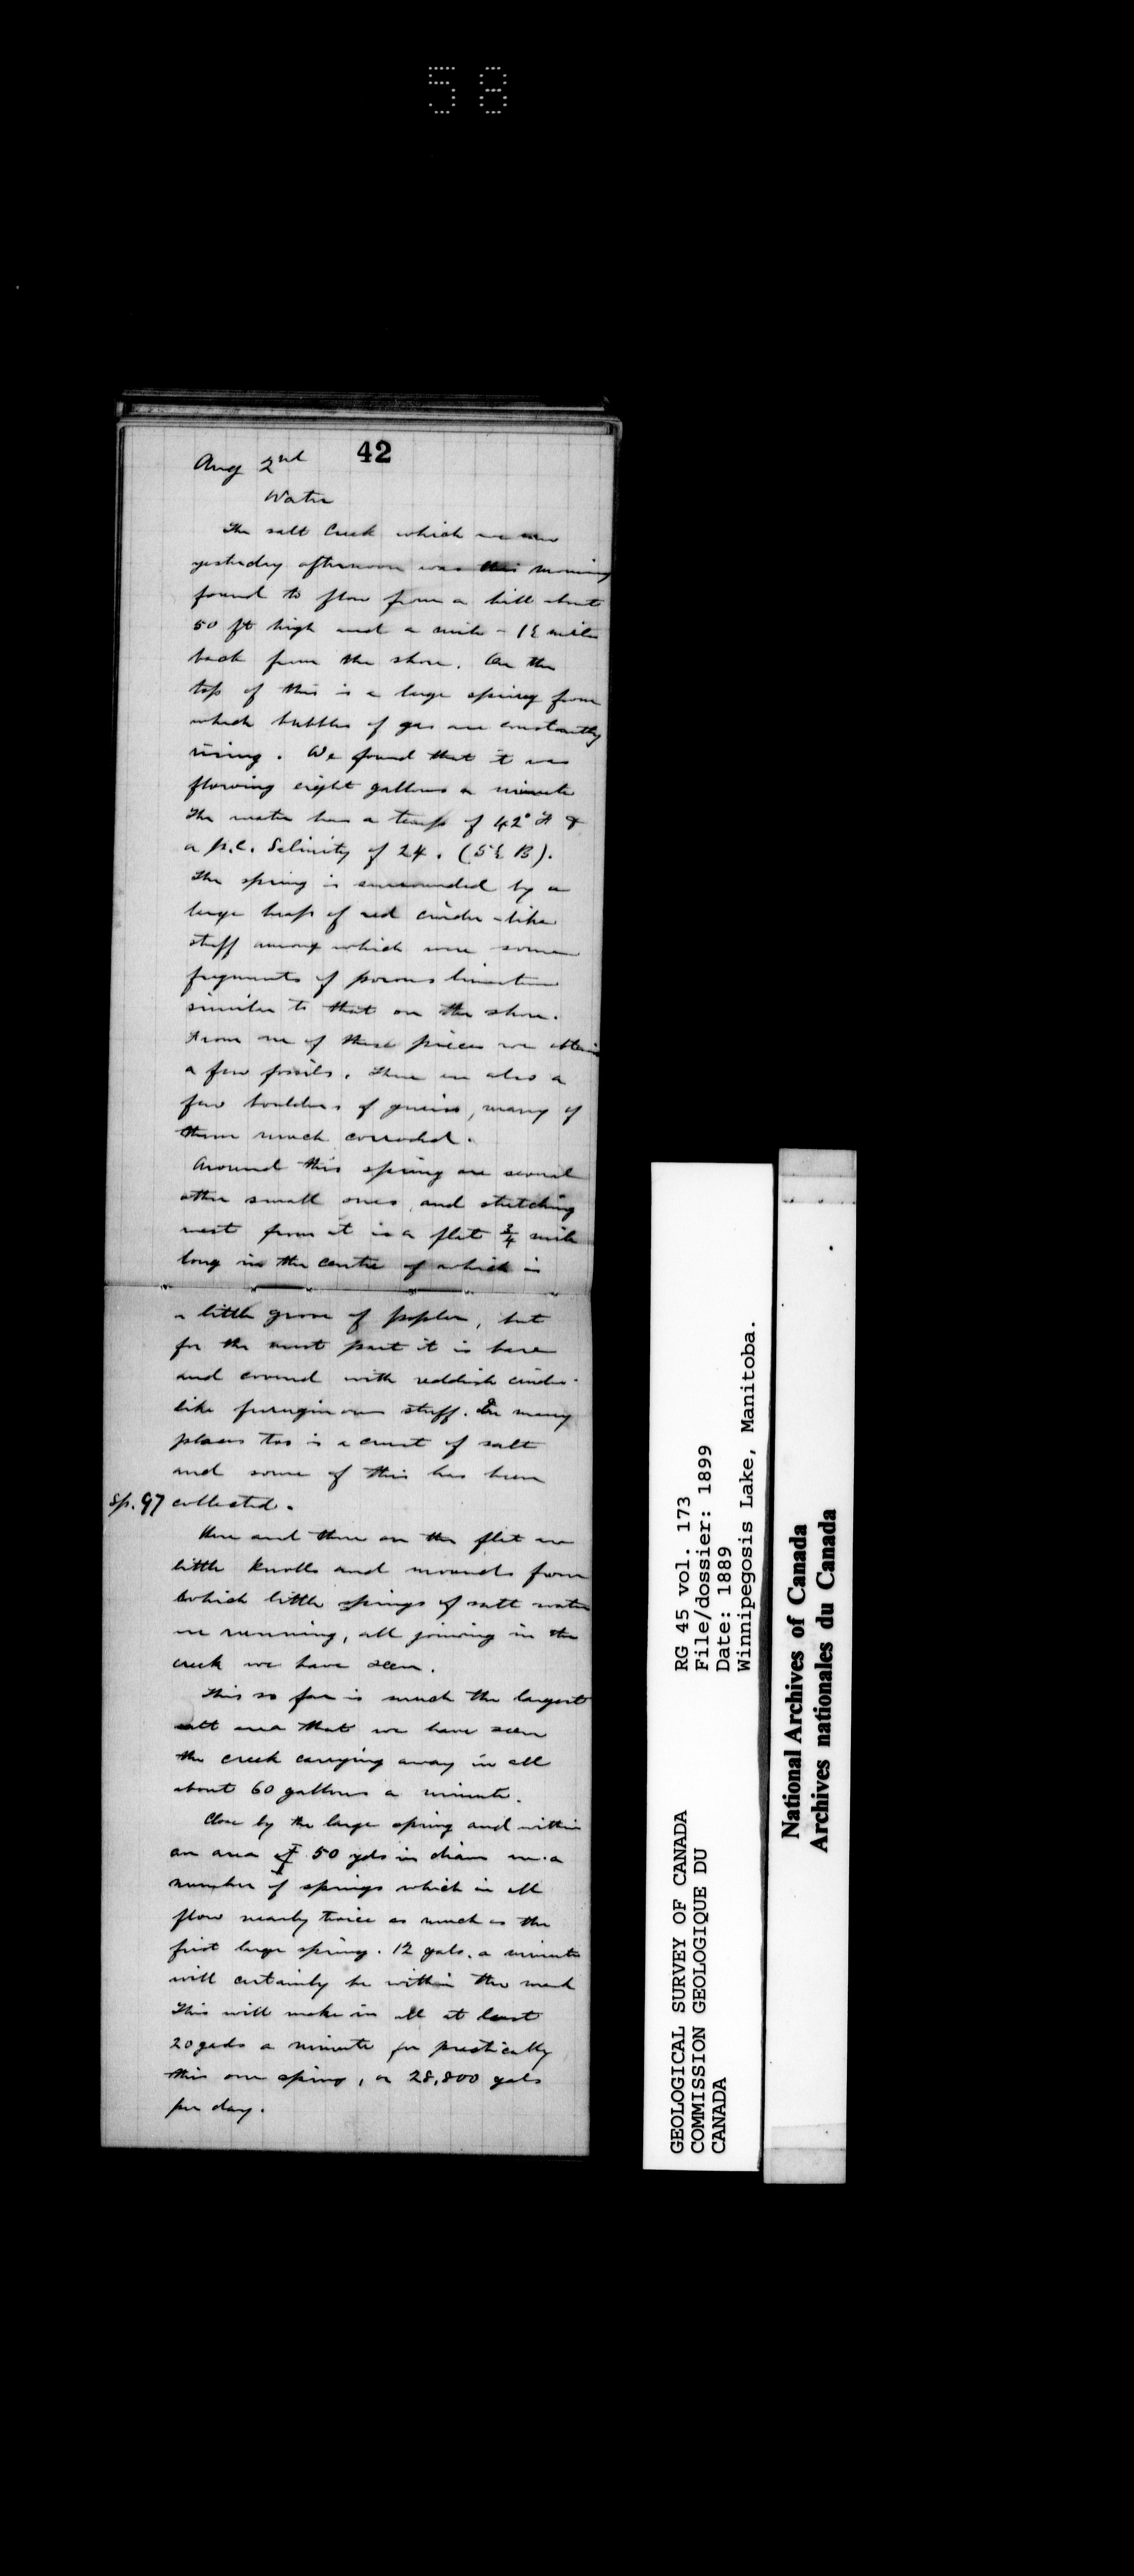 58
42
Aug 2nd
Water
The salt Creek which we saw
yesterday afternoon was this morning
found to flow from a hill about
50 ft high and a mile - 1½ miles
back from the shore. On the
top of this is a large spring from
which bubbles of gas are constantly
rising. We found that it was
flowing eight gallons a minute
The water has a temp of 42° F &
a p.c. Salinity of 24. (5½ B).
The spring is surrounded by a
large heap of red cinder-like
stuff among which were some
fragments of porous limestone
similar to that on the shore.
From one of these pieces we obtain
a few fossils. There are also a
few boulders of gneiss, many of
them much corroded.
Around this spring are several
other small ones, and stretching
west from it is a flat ¾ mile
long in the centre of which is
a little grove of poplar, but
for the most part it is bare
and covered with reddish cinder-
like ferruginous stuff. In many
places too is a crust of salt
and some of this has been
Sp. 97 collected.
Here and there on the flat are
little knolls and mounds from
which little springs of salt water
are running, all joining in the
creek we have seen.
This so far is much the largest
salt area that we have seen
the creek carrying away in all
about 60 gallons a minute.
Close by the large spring and within
an area of 50 yds in diam are a
number of springs which in all
flow nearly twice as much as the
first large spring. 12 gals. a minute
will certainly be within the mark
This will make in all at least
20 gals a minute for practically
this one spring, or 28,800 gals
per day.
GEOLOGICAL SURVEY OF CANADA
COMMISSION GEOLOGIQUE DU
CANADA
RG 45 vol. 173
File/dossier: 1899
Date: 1889
Winnipegosis Lake, Manitoba.
National Archives of Canada
Archives nationales du Canada